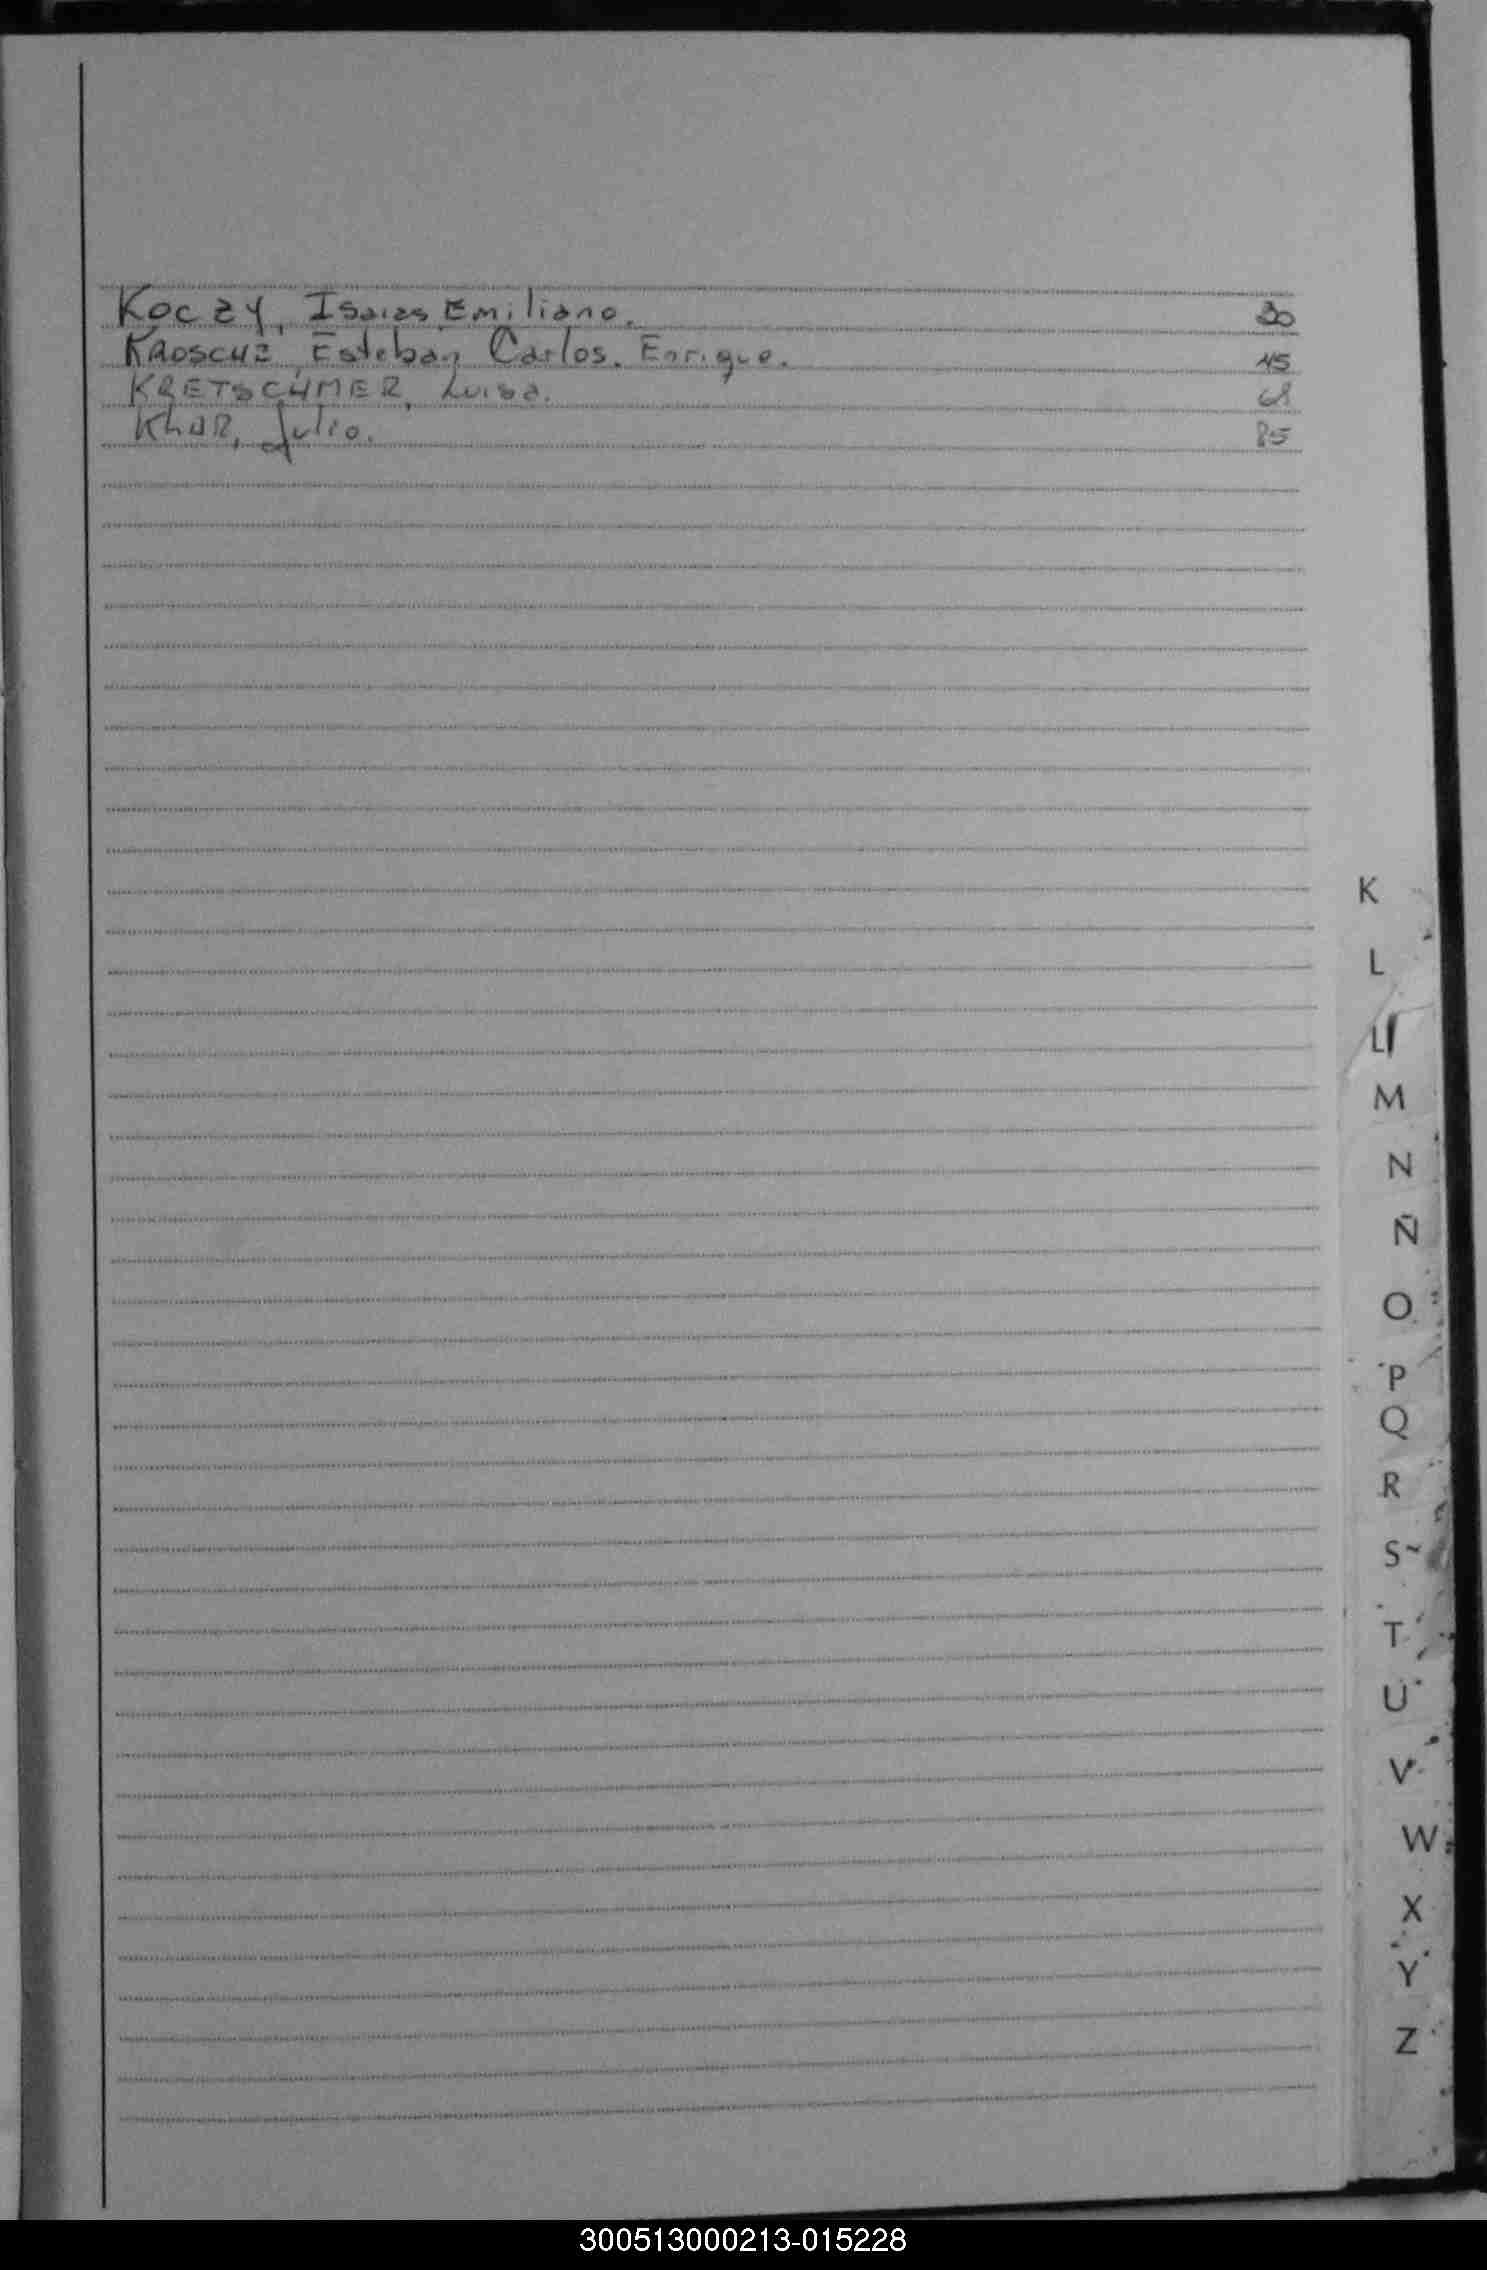 Koczy, Isaias Emiliano. 30
Kroschz, Esteban Carlos. Enrique. 45
KRETSCHMER, Luisa. 68
Khar, Julio. 85
K
L
Ll
M
N
Ñ
O
P
Q
R
S
T
U
V
W
X
Y
Z
300513000213-015228